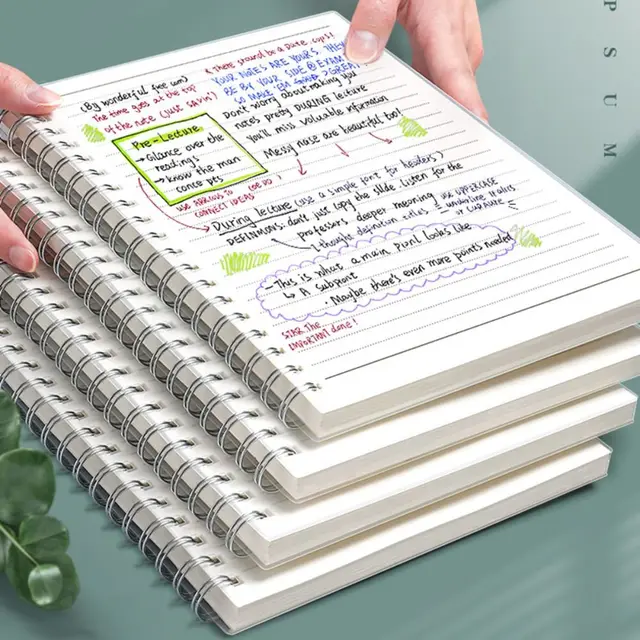 (By wonderful
The time goes at the top
of the note (just sayin')
& there should be a Date, ups!
YOUR NOTES ARE YOURS. THIS
BE BY YOUR SIDE @ EXAM
SO MAKE EM
Don't worry about making you
notes pretty DURING lecture
You'll miss valuable information
Messy note are beautiful too!
Pre-Lecture
→Glance over the
readings
→know the main
concepts
USE ARROWS TO
CONNECT IDEAS
During lecture (use a simple font for headers)
DEFINITIONS don't just copy the slide. Listen for the
professors deeper meaning
(though definition rules
USE UPPERCASE
underline italics
or cursive
→This is what a main point looks like
↳ A subpoint
· Maybe there's even more points needed!
STAR The
IMPORTANT done!
P S U M